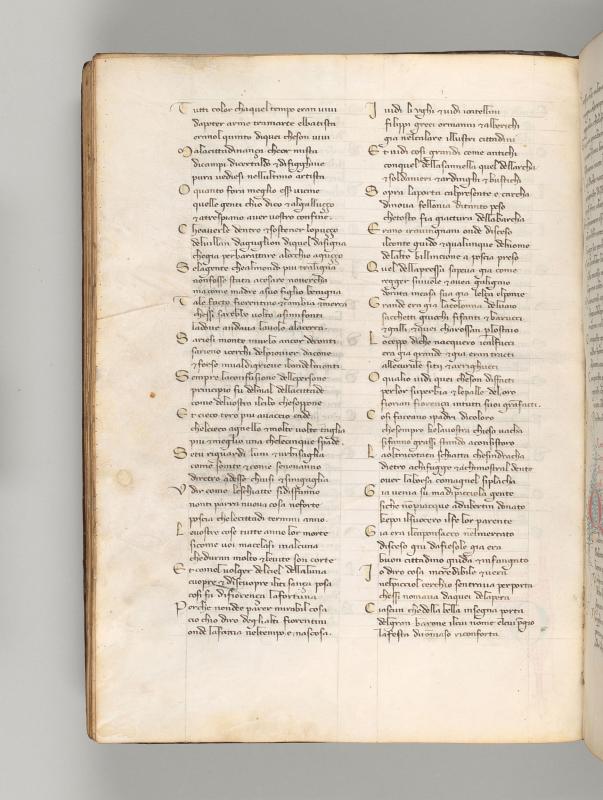 Tutti color chaquel tempo eran ivvi
dapoter arme tramarte elbatista
eranol quinto diquei cheson vivi
Malacittadinança cheor mista
dicampi dicertaldo & difigghine
pura vediesi nellultimo artista
O quanto fora meglio esser vicine
quelle genti chio dico & algalluçço
& atrespiano aver vostro confine.
Cheaverle dentro & sostener lopuçço
delvillan daguglion diquel dasigna
chegia perbarattare alochio aguçço
Selagente chealmondo piu traligna
nonfosse stata acesare novercha
macome madre asuo figlio benigna
Tale facto fiorentino & cambia & merca
chessi sarebbe volto asimifonti
ladove andava lavolo alacerca.
Sariesi monte murlo ancor deconti
sarieno icerchi delpiovier dacone
& forse invaldigrieve ibondelmonti
Sempre laconfusione dellepersone
principio fu delmal dellacittade
come delvostro ilcibo chesoppone
Et cieco toro piu avaccio cade
chelcieco agnello & molte volte taglia
piu & meglio una chelecinque spade.
Setu riguardi luni & urbisaglia
come sonite & come senevanno
diretro adesse chiusi & sinigaglia
Udir come leschiatte sidisfanno
nonti parra nuova cosa neforte
poscia chelecittadi termini anno
Levostre cose tutte anno lor morte
sicome voi macelasi inalcuna
cheduran molto & levite son corte
Et comel volger delciel dellaluna
cuopre & discuopre iliti sança posa
cosi fa difiorença lafortuna
Perche nondee parer mirabil cosa
cio chio diro degli alti fiorentini
onde lafama neltempo e nascosa.
I vidi li ughi & vidi icatellini
filippi greci ormanni & alberichi
gia nelcalare illustri cittadini
Et vidi cosi grandi come antichi
conquel dellasannella quel dellarcha
& soldanieri & ardinghi & bostichi
Sopra laporta calpresente e carcha
dinova fellonia ditanto peso
chetosto fia giactura dellabarcha
Erano iravingnani onde disceso
ilconte guido & qualunque delnome
delalto bellincione a poscia preso
Quel dellapressa sapeva gia come
regger sivuole & avea galigaio
dorata incasa sua gia lelsa elpome
Grande era gia lacolonna delvaio
sacchetti giuochi fifanti & barucci
& galli & quei charossan plostaio
Loceppo diche nacquero icalfucci
era gia grande & gia eran tracti
allecurule siti & arrigucci
O qualio vidi quei cheson disfatti
perlor superbia & lepalle deloro
fiorian fiorença intutti suoi granfacti.
Cosi faceano ipadri dicoloro
chesempre kelavostra chiesa vacha
sifanno grassi stando aconsistoro
Laoltracotata schiatta chesindracha
dietro achifugge & achimostral dente
over laborsa comagnel siplacha
Gia venia su madipicciola gente
siche nonpiacque adubertin donato
kepoi ilsuocero ilfe lor parente
Gia era ilcaponsacco nelmercato
disceso giu dafiesole gia era
buon cittadino guida & infangato
Io diro cosa incredibile & vera
nelpicciol cerchio sentrava perporta
chessi nomava daquei delapera
Ciascun chedella bella insegna porta
delgran barone ilcui nome elcui pregio
lafesta ditomaso riconforta